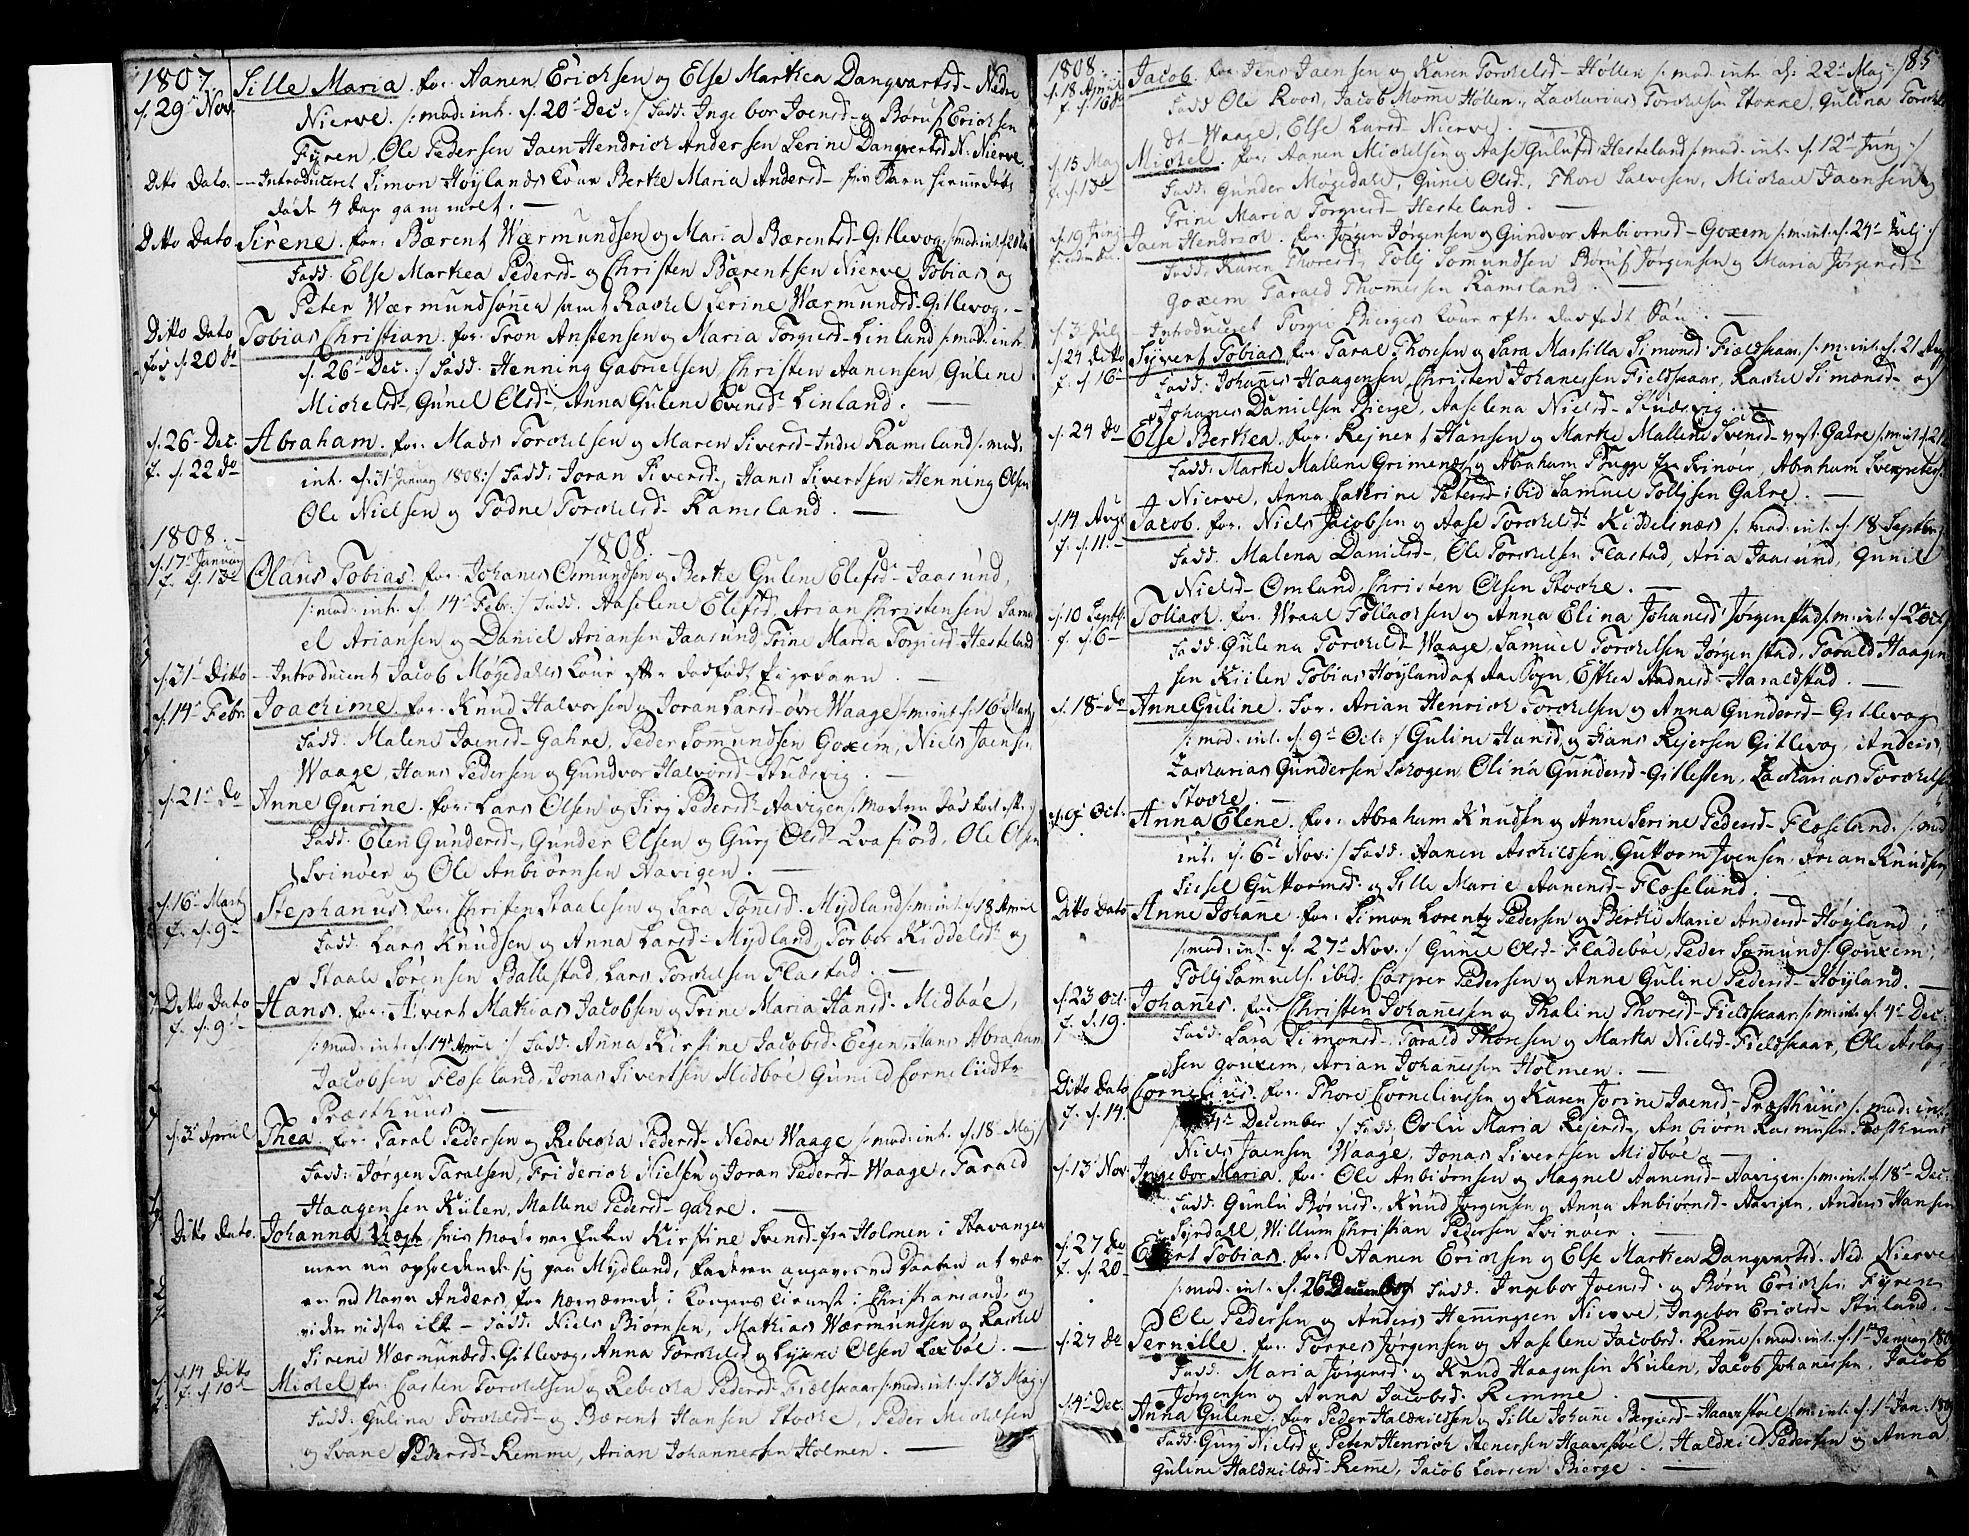 1807
d. 29 Nov. Sille Maria. for. Aanen Erichsen og Else Marthea Danqvartsd- Nedre
Nierve. /: mod: int. d. 20 Dec :/ Fadd: Ingebor Joensd- og Børu/ Erichsen
Fyren, Ole Pedersen Jaen Hendrich Andersen Serine Danqvertsd N: Nierve.
Ditto Dato. - Introduceret Simon Høylands Kone Berthe Maria Andersd- hvis Barn
døde 4 Dage gammelt. -
Ditto Dato Sirene. for. Bærent Wærmundsen og Maria Bærentsd- Gitlevog. /: mod: int. d. 20 Dec
Fadd: Else Marthea Pedersd- og Christen Bærentsen Nierve Tobias og
Peter Wærmundsønner samt Rachel Serine Wærmundsd- Gitlevog. -
Ditto Dato Tobias Christian. for. Tron Anstensen og Maria Torgiersd- Linland /: mod: int.
fød d. 20 dº d. 26 Dec. :/ Fadd: Henning Gabrielsen, Christen Aanensen Gulene
Michelsd-, Gunel Olsd-, Anna Gulene Evensd- Linland. -
d. 26 Dec. Abraham. for. Mads Torchelsen og Maren Siversd- Indre Rameland /: mod:
f. d. 22 dº int. d. 31 Januarij 1808 :/ Fadd: Joran Siversd-, Hans Sivertsen, Henning Olsen
Ole Nielsen og Todne Torchelsd- Ramsland. -
1808. - 1808.
d. 17 Januarij Olaus Tobias. for. Johanes Osmundsen og Berthe Gulene Elefsd- Jaasund,
f. d. 13 /: mod: int. d. 14 Febr. :/ Fadd: Aaselene Elefsd, Arian Christensen Samu
el Ariansen og Daniel Ariansen Jaasund, Trine Maria Torgiersd- Hesteland
d. 31 Ditto - Introduceret Jacob Møgedals Kone efter dødfødt Pigebarn. -
d. 14 Febr. Joachime. for. Knud Halvorsen og Joran Larsd- øvre Waage /: m: int. d. 16 Martij
Fadd: Malene Joensd- Gahre, Peder Somundsen Goxem, Niels Jaensen
Waage, Hans Pedersen og Gundvor Halvorsd- Studevig. -
d. 21 dº Anne Gurine. for. Lars Olsen og Sirj Pedersd- Aavigen /:
Fadd: Elen Gundersd-, Gunder Olsen og Gurj Olsd- Qvafiord, Ole Olsen
Svinøer og Ole Anbiørnsen Aavigen. -
d. 16 Martij Stephanus. for. Christen Staalesen og Sara Tønnesd. Mydland /: m: int. d. 18 April
f. d. 9 Fadd: Lars Knudsen og Anna Larsd- Mydland, Torbor Kiddelsd- og
Staale Sørensen Ballestad, Lars Torchelsen Flastad. -
Ditto Dato Hans. for. Aivert Mathias Jacobsen og Trine Maria Hansd- Midbøe,
f. d. 9 /: mod: int. d. 14 April :/ Fadd: Anna Kirstine Jacobsd- Eegen, Hans Abraham
Jacobsen Floseland, Jonas Sivertsen Midbøe Gunild Corneliidtr
Præsthuus. -
d. 3 April Thea. for. Taral Pedersen og Rebecka Pedersd- Nedre Waage /: mod: int. d. 18 Maj :/
Fadd: Jørgen Taralsen, Friderich Nielsen og Joran Pedersd- Waage, Tarald
Haagensen Kiilen, Mallene Pedersd- Gahre. -
Ditto Dato. Johanna. Uægte hvis Moder var Enken Kirstine Svensd- fra Holmen i Stavanger
men nu opholdende sig paa Mydland, Faderen angaves ved Daaben at være
en ved Navn Anders for nærværende i Kongens tieneste i Christiansand, og
videre vidste ikke - Fadd: Niels Biørnsen, Mathias Wærmundsen og Rachel
Sirene Wærmundsd- Gitlevog, Anna Torchelsd- og Lykke Olsen Lexbøe. -
d. 14 Ditto Michel. for. Casten Torchelsen og Rebecka Pedersd- Fielskaar /: mod: int. d. 13 Maj :/
f. d. 10 Fadd: Gulina Torchelsd- og Bærent Hansen Stocke, Peder Michelsen
og Svane Pedersd- Remme, Arian Johannessen Holmen. -
1808 85
d. 18 April Jacob. for. Jens Jaensen og Karen Torchelsd- Hollen /: mod: int. d. 22 Maj :/
f. d. 16 dº Fadd: Ole Roos, Jacob Momme Hollen, Zacharias Torchelsen Stokke, Gulina Torchels
dt- Waage, Else Larsd- Nierve. -
d. 15 Maj Michel. for. Aanen Michelsen og Aase Gulufsd Hesteland /: mod: int. d. 12 Junj :/
f. d. 13 Fadd: Gunder Møgedahl, Gunel Olsd-, Thore Salvesen, Michael Jaensen og
Trine Maria Torgiersd- Hesteland. -
d. 19 Junj Jaen Hendrich. for. Jørgen Jørgensen og Gundvor Anbiørnsd- Goxem /: m: int. d. 24 Julj :/
Fadd: Karen Thoresd-, Tollj Somundsen Børuf Jørgensen og Maria Jørgensd-
Goxem, Tarald Thomessen Ramsland. -
d. 3 Julj - Introduceret Torgie Bierges Kone efter dødfødt Søn. -
d. 24 ditto Syvert Tobias. for. Taral Thoresen og Sara Massilla Simonsd- Fieldskaar. /: m: int. d. 21 Aug
f. d. 16 Fadd: Johannes Haagensen, Christen Johanessen Fieldskaar, Rachel Simonsd- og
Johanes Danielsen Bierge, Aaselena Nielsd- Studevig. -
d. 24 dº Else Berthea. for. Rejnert Hansen og Marthe Mallene Svensd- vest Gahre /: m: int. d. 21
Fadd: Marthe Mallene Grimenæs og Abraham Brygge fra Svinøer, Abraham Svenpeters.
Nierve, Anna Cathrine Petersd- ibid Samuel Tolljsen Gahre. -
d. 14 Aug. Jacob. for. Niels Jacobsen og Aase Torchelsd- Kiddelsnæs /: mod: int. d. 18 Septbr.
f. d. 11 Fadd: Malena Danielsd-, Ole Torchelsen Flastad, Aria Jaasund, Gunil
Nielsd- Omland, Christen Olsen Stocke. -
d. 10 Septb. Tollach. for. Wraal Tollachsen og Anna Elina Johansd- Jørgenstad /: m: int. d. 2 Oct.
f. d. 6 Fadd: Gulena Torchelsd- Waage, Samuel Torchelsen Jørgenstad, Tarald Haagen
sen Kiilen Tobias Høyland af Aae Sogn, Esther Andnesd- Haraldstad. -
d. 18 dº Anne Guline. for. Arian Henrich Torchelsen og Anna Gundersd- Gitlevog
/: mod: int. d. 9 Oct. :/ Guline Hansd, og Hans Rejersen Gitlevog, Anders,
Zacharias Gundersen Schogen Olina Gundersd- Gitlesten, Zacharias Torchelsen
Stocke. -
d. 9 Oct. Anna Elene. for. Abraham Knudsen og Anne Serine Pedersd- Floseland. /: mod
int. d. 6 Nov: :/ Fadd: Aanen Aschildsen, Guttorm Jvensen, Arian Knudsen
Sissel Guttormsd- og Sille Marie Aanensd- Floseland. -
Ditto Dato Anne Johanne. for. Simon Lorentz Pedersen og Berthe Marie Andersd- Høyland,
/: mod: int. d. 27 Nov. :/ Gunel Olsd- Fladebøe, Peder Somunds. Gouxem,
Tollj Samuels. ibid. Casper Pedersen og Anne Guline Pedersd- Høyland. -
d. 23 Oct. Johannes. for. Christen Johanessen og Thaline Thoresd- Fieldskaar /: m: int. d. 4 Dec.
f. d. 19. Fadd: Sara Simonsd-, Tarald Thoresen og Martha Nielsd- Fieldskaar, Ole Aslag
sen Gouxem, Arian Johannessen Holmen. -
Ditto Dato Cornelius. for. Thore Corneliussen og Karen Jorine Jaensd- Præsthuus /: mod: int.
f. d. 14. December :/ Fadd: Oslu Maria Rejersd-, Anbiørn Rasmusen Præsthuus
Niels Jaensen Waage, Jonas Sivertsen Midbøe. -
d. 13 Nov. Ingebor Maria. for. Ole Anbiørnsen og Magnel Annensd- Aavigen /: m: int. d. 18 Dec.
Fadd: Gunlu Børusd-, Knud Jørgensen og Anna Anbiørnsd- Aavigen, Anders Hansen
Syrdahl, Willum Christian Pedersen Svinøer. -
d. 27 dº Evert Tobias. for. Aanen Erichsen og Else Marthea Danqvartsd- Ned. Nierve
f. d. 20 /: mod: int. d. 26 December Fadd: Ingebor Joensd- og Børu Erichsen Fyren
Ole Pedersen og Anders Henningsen Nierve, Ingebor Erichsd- Stuland. -
d. 27 dº Pernille. for. Torres Jørgensen og Aaselene Jacobsd- Remme /: mod: int. d. 1 Januarij 1809
Fadd: Maria Jørgensd- og Knud Haagensen Kiilen, Jacob Johanessen, Jacob
Jørgensen og Anna Jacobsd- Remme. -
d. 4 Dec. Anna Gulene. for Peder Haldrildsen og Sille Johanne Bergiersd- Haavestøel /: m: int. d. 1 Jan: 1809
Fadd: Gurj Nielsd, Peter Henrich Stenersen Haavestøel, Haldrild Pedersen og Anna
Guline Haldrildsd- Remme, Jacob Larsen Bierge. -